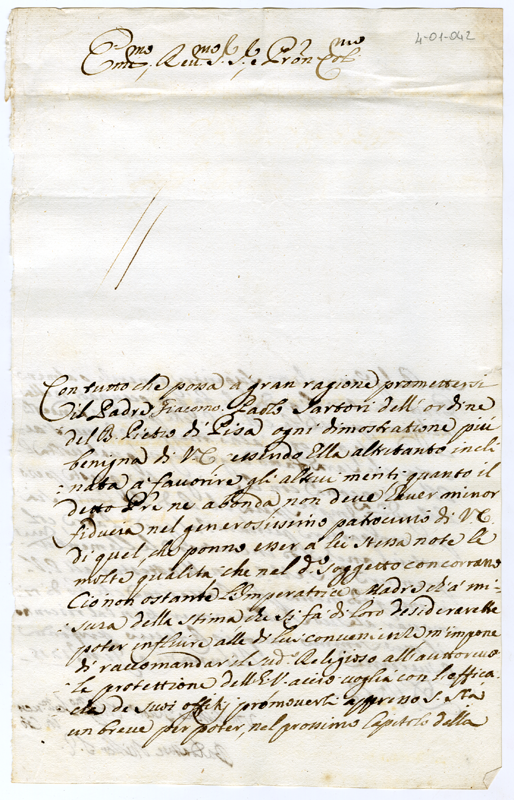 4-01-042
Em.mo Rev.mo S.r S.r e Pron Col.mo
Con tutto che possa a gran ragione promettersi
il Padre Giacomo Paolo Sartori dell' ordine
del B. Pietro di Pisa ogni dimostratione più
benigna di V.E. essendo Ella altretanto incli
nata a favorire gli altrui meriti quanto il
detto Pre ne abonda non deve haver minor
fiducia nel generosissimo patrocinio di V.E.
di quel che ponno esser a lei stessa note le
molte qualità che nel d.o soggetto concorrano
Ciò non ostante l'Imperatrice Madre ch' a' mi
sura della stima che si fà di loro desiderarebbe
poter influire alle di lui convenienze m'impone
di raccomandar il sud.o Religioso all' auttorevo
le protettione dell' E.V. acciò voglia con l'effica
cia de suoi offitij promoverli appresso S. Stà
un breve per poter, nel prossimo Capitolo della